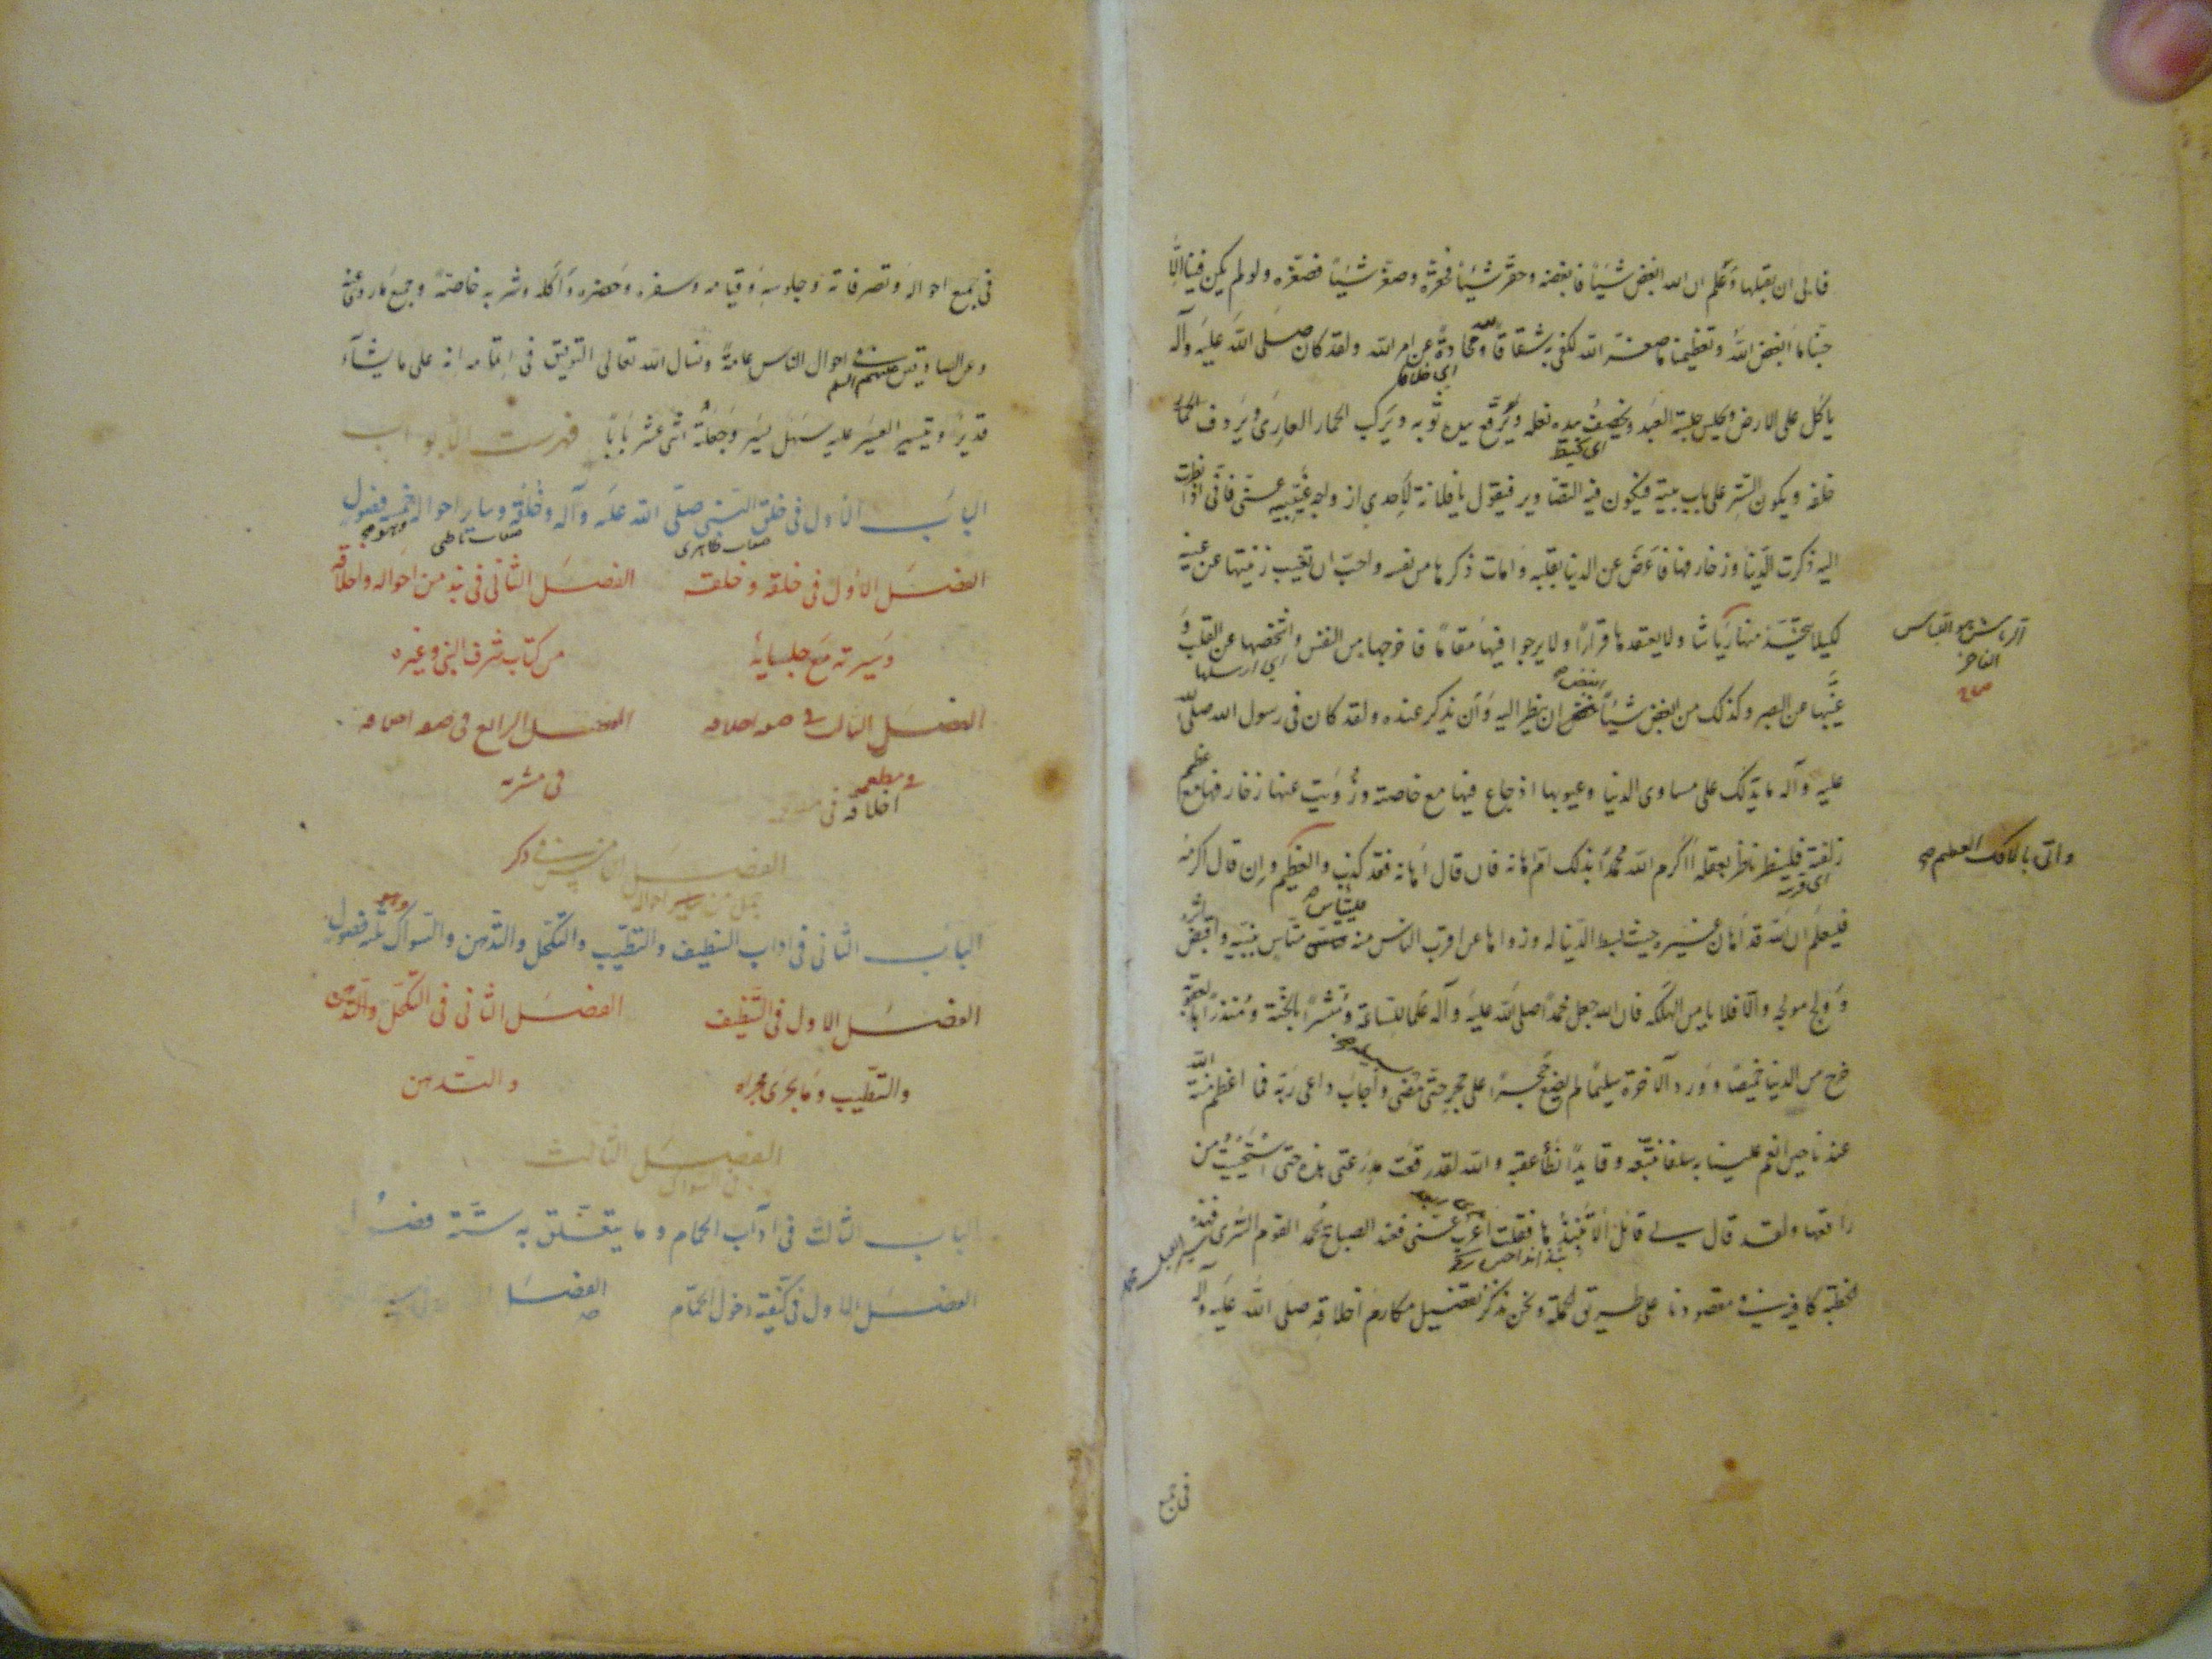 فابى ان يقبلها وعلم ان الله ابغض شيئاً فابغضه وحقّر شيئاً فحقّره وصغّر شيئاً فصغّره ولو لم يكن فينا الّا
حبّنا ما ابغض الله وتعظيمنا ما صغّر الله لكفى به شقاقاً لله ومحادّة عن امر الله ولقد كان صلّى الله عليه وآله
اى خلافا
ياكل على الارض ويجلس جلسة العبد ويخصف بيده نعله ويُرقّع بيده ثوبه ويركب الحمار العارىَ ويردف
اى يخيط
خلفه ويكون السّتر على باب بيته فيكون فيه التصاوير فيقول يا فلانة لاحدى ازواجه غيّبيه عنّى فانّى اذا نظرت
اليه ذكرت الدّنيا وزخارفها فاعرض عن الدنيا بقلبه وامات ذكرها من نفسه واحبّ ان تغيب زينتها عن عينه
لكيلا يتّخذ منها رياشا ولا يعتقدها قراراً ولا يرجوا فيها مقاماً فاخرجها من النفس واشخصها عن القلب و
الرياش هو اللباس
الفاخر
اى ارسلها
غيّبها عن البصر وكذلك من ابغض شيئاً ابغض ان ينظر اليه وأن يذكر عنده ولقد كان فى رسول الله صلّى الله
عليه وآله ما يدلّك على مساوى الدنيا وعيوبها اذ جاع فيها مع خاصته وزُويت عنها زخارفها مع عظيم
زلفته فلينظر ناظر بعقله أاكرم الله محمّداً بذلك ام اهانه فان قال اهانه فقد كذب والعظيم وان قال اكرمه
واتى بالافك العظيم صح
اى قربه
فليعلم ان الله قد أهان غيره حيث بسط الدّنيا له وزواها عن اقرب الناس منه متأسٍّ بنبيّه واقتصّ اثره
وولج مولجه والّا فلا يامن الهلكة فان الله جعل محمّداً صلى الله عليه وآله عَلَماً للسّاعة ومُبشّراً بالجنّة ومُنذراً بالعقوبة
خرج من الدنيا خميصًا وورد الآخرة سليماً لم يضع حجراً على حجر حتّى مضى وأجاب داعى ربّه فما اعظم منّة الله
عندنا حين انعم علينا به سلفا نتّبعه وقايداً نطأ عقبه والله لقد رقّعت مِدرعتى هذه حتى استحييتُ من
راقعها ولقد قال لى قائل الا تنبذها فقلت اعزب عنّى فعند الصباح يحمد القوم السّرى فهذه
الخطبة كافية فى مقصودنا على طريق الجملة ونحن نذكر تفصيل مكارم اخلاقه صلى الله عليه وآله
فى جميع
فى جميع احواله وتصرفاته وجلوسه وقيامه وسفره وحضره وأكله وشربه خاصّةً وجميع ما روى عنه
وعن الصادقين عليهم السلم فى احوال الناس عامّةً ونسال الله تعالى التوفيق فى اتمامه انه على ما يشآء
قديرٌ وتيسير العسير عليه سهل يسير وَجَعلتُه اثنى عشر باباً فهرست الابواب
الباب الاول فى خلق النبىّ صلّى الله عليه وآله وخُلُقه وساير احواله خمسة فصول
الفصل الاول فى خلقه وخلقه الفصل الثانى فى نبذ من احواله واخلاقه
وسيرته مع جلسائه من كتاب شرف النبى وغيره
الفصل الثالث فى صفة اخلاقه الفصل الرابع فى صفة اخلاقه
فى مطعمه فى مشربه
الفصل الخامس فى ذكر
الباب الثانى فى اداب التنظيف والتطيّب والتكحّل والتدهن والسّواك ثلثة فصول
الفصل الاول فى التنظيف الفصل الثانى فى التكحّل والتدهن
والتطيّب وما يجرى مجراه والتدهن
الفصل الثالث
فى السواك
الباب الثالث فى آداب الحمام وما يتعلّق به ستّة فصول
الفصل الاول فى كيفية دخول الحمّام الفصل